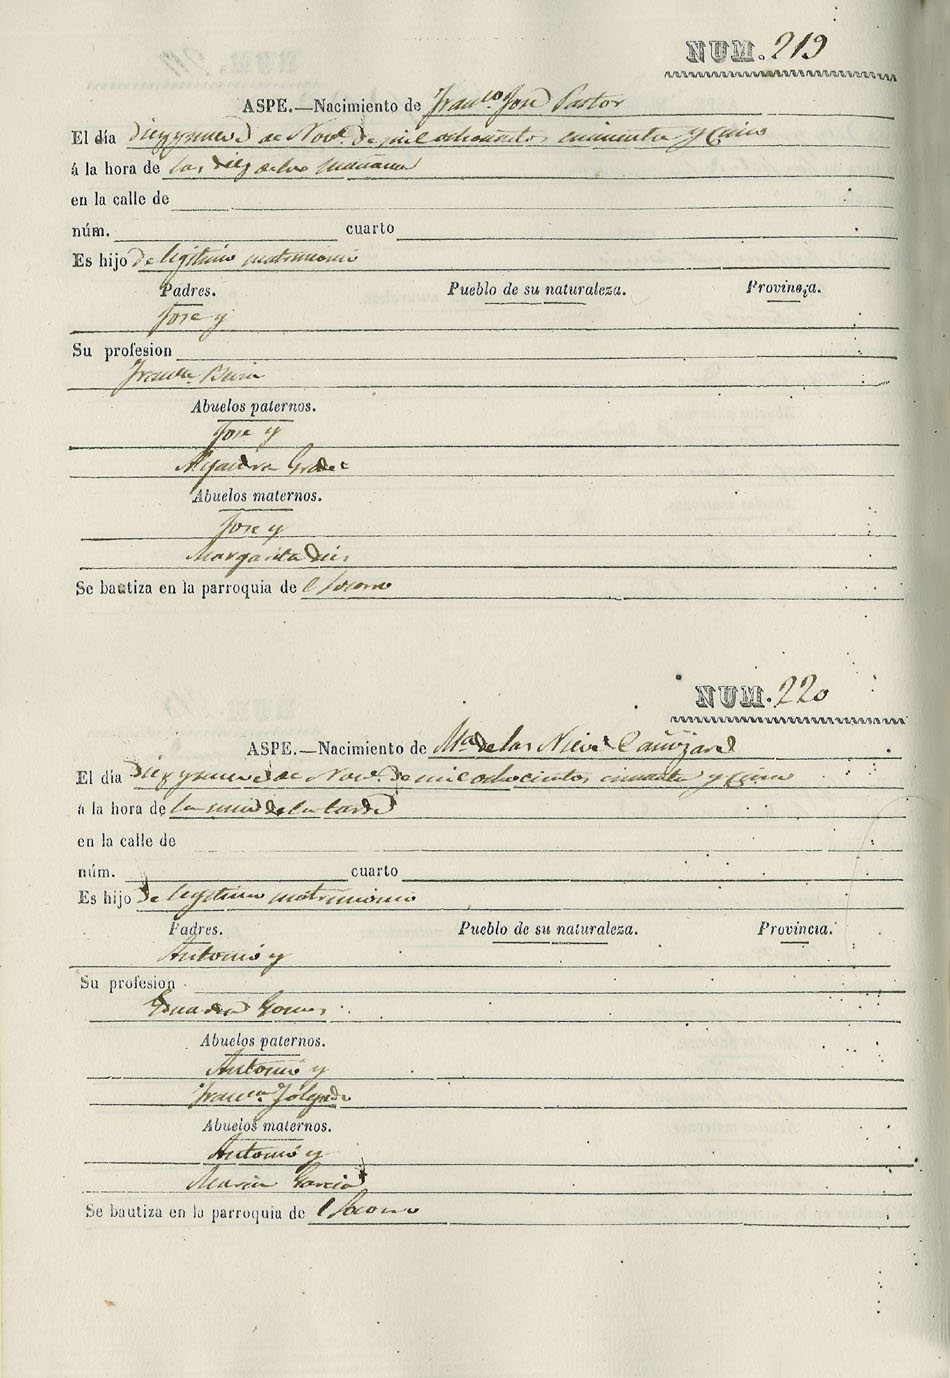 NUM. 219
ASPE.—Nacimiento de Franco. José Pastor
El día diez y nueve de Nove. de mil ochocientos cincuenta y Cinco
á la hora de las diez de la mañana
en la calle de
núm. cuarto
Es hijo de legitimo matrimonio
Padres. Pueblo de su naturaleza. Provincia.
Jose y
Su profesion
Franca.
Abuelos paternos.
Jose y
Abuelos maternos.
Jose y
Margarita
Se bautiza en la parroquia de l Socorro
NUM. 220
ASPE.—Nacimiento de Ma. de las Nieves Cañizares
El día diez y nueve de Nove. de mil ochocientos cincuenta y Cinco
á la hora de la una de la tarde
en la calle de
núm. cuarto
Es hijo de legitimo matrimonio
Padres. Pueblo de su naturaleza. Provincia.
Antonio y
Su profesion
Gomes
Abuelos paternos.
Antonio y
Franca.
Abuelos maternos.
Antonio y
Maria Garcia
Se bautiza en la parroquia de l Socorro